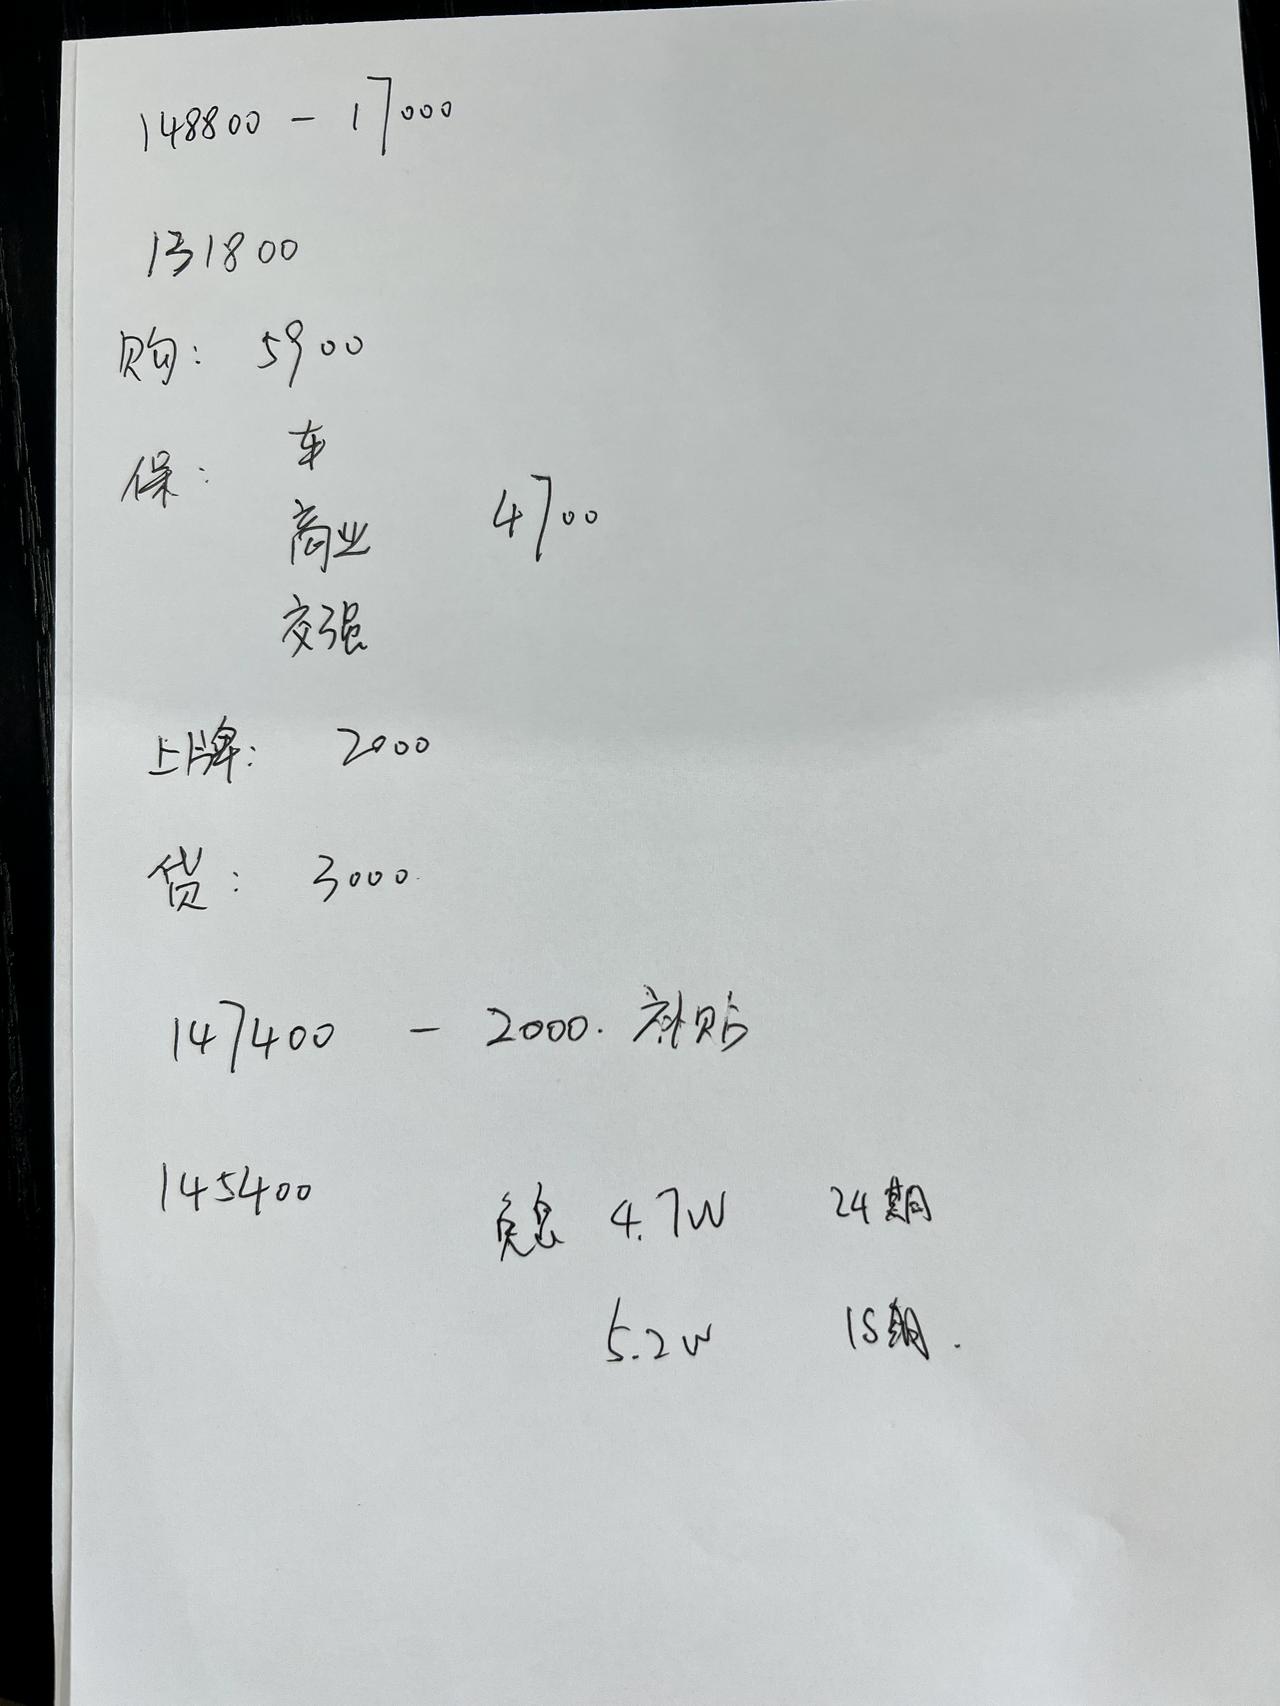 148800 - 17000
131800
购: 5900
保: 车
商业 4700
交强
上牌: 2000
贷: 3000
147400 - 2000. 补贴
145400
免息 4.7W 24期
5.2W 15期.